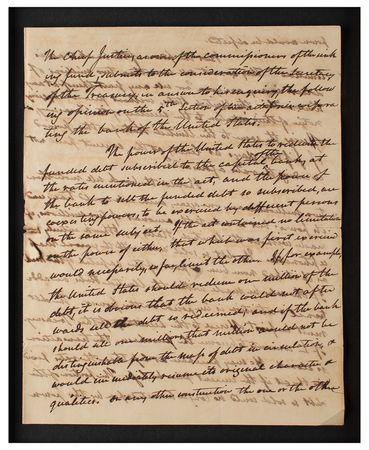 The Chief Justice, as one of the commissioners of the sink
ing fund, submits to the consideration of the Secretary
of the Treasury, in answer to his enquiry, the follow
ing opinion on the 5th section of the act for incorpora
ting the bank of the United States.
The power of the United States to redeem the
funded debt subscribed to the capital of the bank, at
the rates mentioned in the act, and the power of
the bank to sell the funded debt so subscribed, are
coexisting powers, to be exercised by different persons
on the same subject. If the act contained no limitation
on the power of either, that which was first exercised
would necessarily, so far, limit the other. If for example,
the United States should redeem one million of the
debt, it is obvious that the bank could not after
wards sell the debt so redeemed; and if the bank
should sell one million, that million could not be
distinguishable from the mass of debt in circulation, &
would immediately resume its original character &
qualities. On any other construction the one or the other